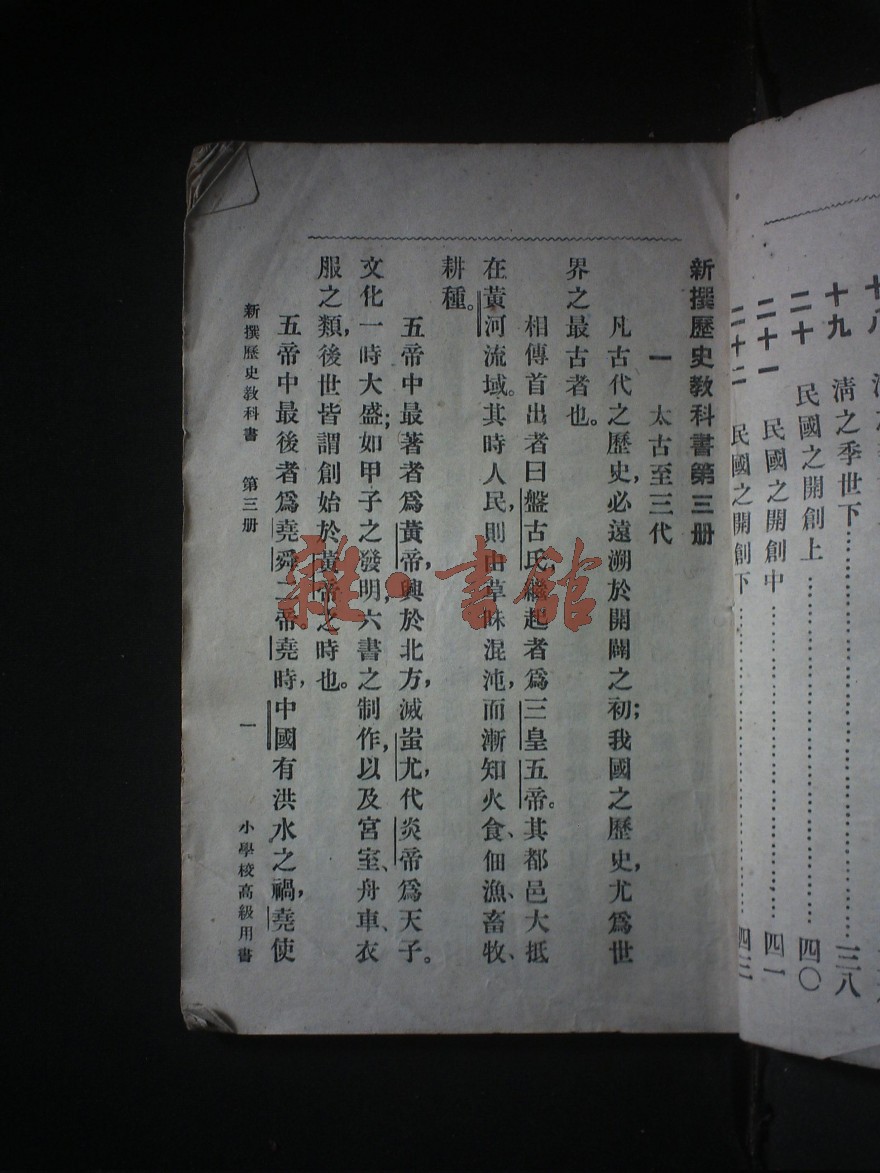 新撰歷史教科書第三册
一 太古至三代
凡古代之歷史，必遠溯於開闢之初；我國之歷史，尤爲世
界之最古者也。
相傳首出者曰盤古氏，繼起者爲三皇五帝。其都邑大抵
在黃河流域。其時人民，則由草昧混沌，而漸知火食、佃漁、畜牧、
耕種。
五帝中最著者爲黃帝，興於北方，滅蚩尤，代炎帝爲天子。
文化一時大盛；如甲子之發明，六書之制作，以及宮室、舟車、衣
服之類，後世皆謂創始於黃帝之時也。
五帝中最後者爲堯舜二帝。堯時，中國有洪水之禍，堯使
新撰歷史教科書 第三册 一 小學校高級用書
雜·書館
十八
十九 清之季世下 三八
二十 民國之開創上 四〇
二十一 民國之開創中 四一
二十二 民國之開創下 四三